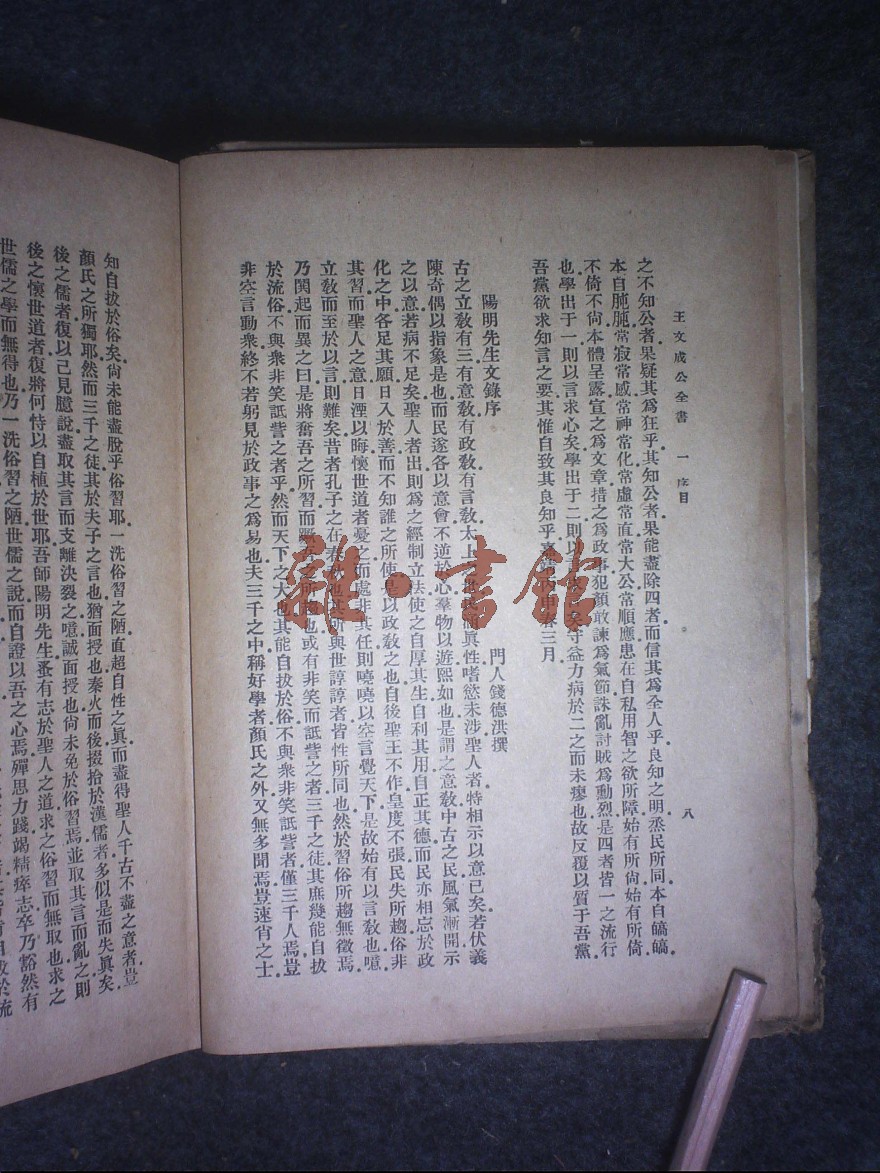 王文成公全書 一 序目 八
之不知公者果疑其爲狂乎其知公者果能盡除四者而信其爲全人乎良知之明烝民所同本自皜皜
本自肫肫常寂常感常神常化常虛常直常大公常順應患在自私用智之欲所障始有所尙始有所倚
不倚不尙本體呈露宣之爲文章措之爲政事犯顏敢諫爲氣節誅亂討賊爲勳烈是四者皆一之流行
也學出于一則以言求心矣學出于二則以矣守益力病於二之而未瘳也故反覆以質于吾黨
吾黨欲求知言之要其惟自致其良知乎嘉靖申春三月
陽明先生文錄序 門人錢德洪撰
古之立敎有三有意敎有政敎有言敎太上之民眞性嗜慾未涉聖人者特相示以意已矣若伏羲
陳奇偶以指象是也而民遂各以意會不逆於心羣物以遊熙如也是謂之意敎中古之民風氣漸開示
之以意若病不足矣聖人者出則爲之經制立法使之自厚其生自利其用自正其德而民亦相忘於政
化之中各足其願日入於善而不知誰之所使是以政敎之也自後聖王不作皇度不張民失所趨俗非
其習而聖人之意日湮以晦懷世道者憂之而處非其任則嘵嘵以空言覺天下是故始有以言敎也噫
立敎而至於以言則難矣昔者孔子之在春秋也其所與世諄諄者皆性所同也然於習俗所趨無徵焉
乃鬨起而異之曰是將奮吾之所習而蹶吾之所趨也或有非笑而詆訾之者三千之徒其庶幾能自拔
於流俗不與衆非笑詆訾之者乎然而天下之大也其能自拔於俗不與衆非笑詆訾者僅三千人焉豈
非空言動衆終不若躬見於政事之爲易也夫三千之中稱好學者顏氏之外又無多聞焉豈速肖之士
知自拔於俗矣尙未能盡脫乎俗習耶一洗俗習之陋直超自性之眞而盡得聖人千古不盡之意者豈
顏氏之所獨耶然而三千之徒其於夫子之言也猶面授也秦火而後掇拾於漢儒者多似是而失眞矣
後之儒者復以己見臆說盡取其言而支離決裂之噫誠面授也尙未免於俗習焉並取其言而亂之則
後之懷世道者復將何恃以自植於世耶吾師陽明先生蚤有志於聖人之道求之俗習而無取也求之
世儒之學而無得也乃一洗俗習之陋世儒之說而自證以吾之心焉殫思力踐竭精瘁志卒乃豁然有
雜·書館